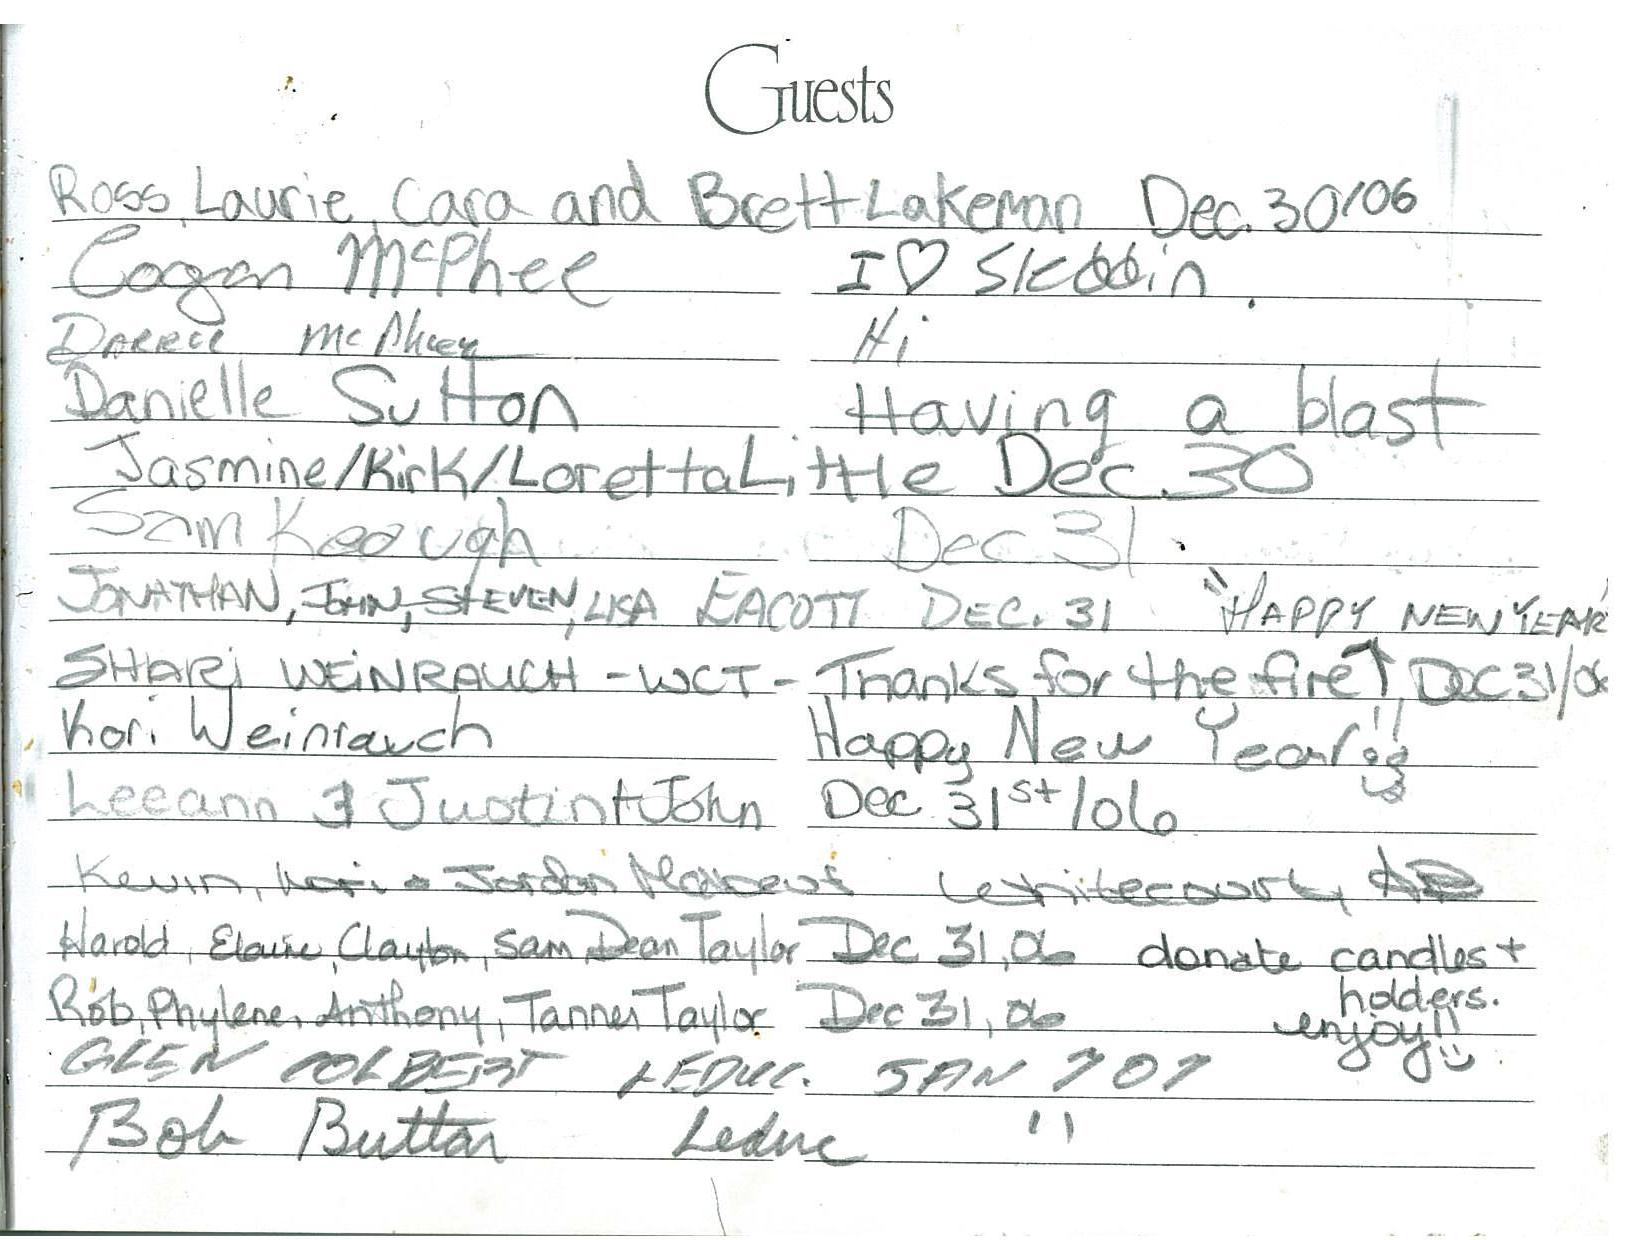 Guests
Ross, Laurie, Cara and Brett Lakeman Dec. 30/06
Cogan McPhee I ♡ Sleddin.
Darrell McPhee Hi
Danielle Sutton Having a blast
Jasmine/Kirk/Loretta Little Dec. 30
Sam Keough Dec 31
JONATHAN, JOHN, STEVEN, LISA EACOTT DEC. 31 "HAPPY NEW YEAR
SHARi WEiNRAUCH - WCT - Thanks for the fire ↑ DEC 31/06
Kori Weinrauch Happy New Year!!
Leeann & Justin + John Dec 31st/06
Kevin, Kori & Jordan Whitecourt, AB
Harold, Elaine, Clayton, Sam Dean Taylor Dec 31, 06 donate candles +
holders.
Rob, Phylene, Anthony, Tanner Taylor Dec 31, 06 enjoy!!
GLEN COLBERT LEDUC. JAN 7 07
Bob Button Leduc 11